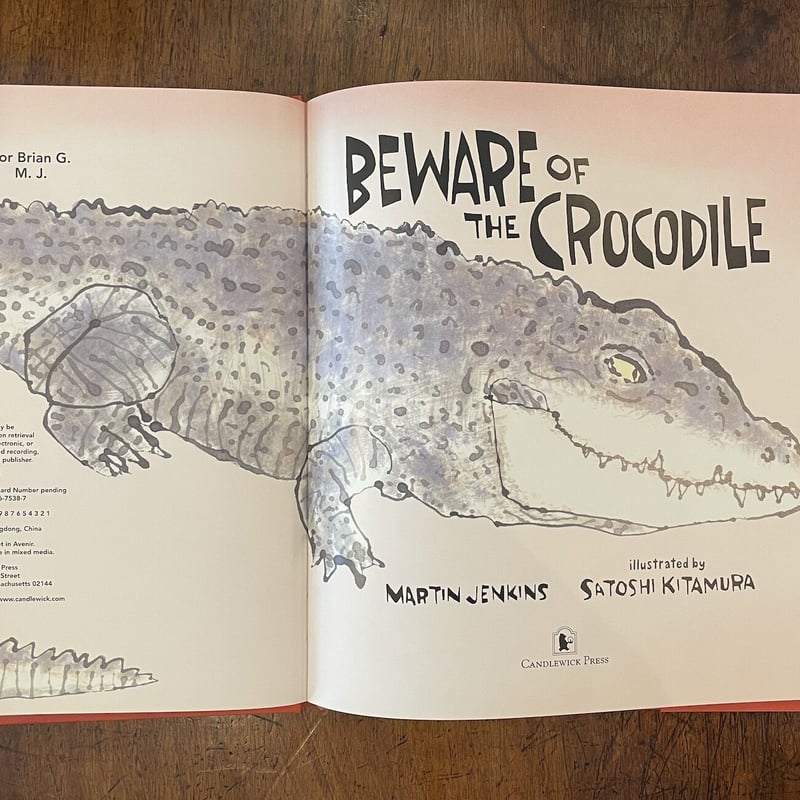 or Brian G.
M. J.
y be
on retrieval
ectronic, or
d recording,
publisher.
ard Number pending
6-7538-7
9 8 7 6 5 4 3 2 1
gdong, China
t in Avenir.
e in mixed media.
Press
Street
achusetts 02144
www.candlewick.com
BEWARE OF
THE CROCODILE
MARTIN JENKINS
illustrated by
SATOSHI KITAMURA
CANDLEWICK PRESS